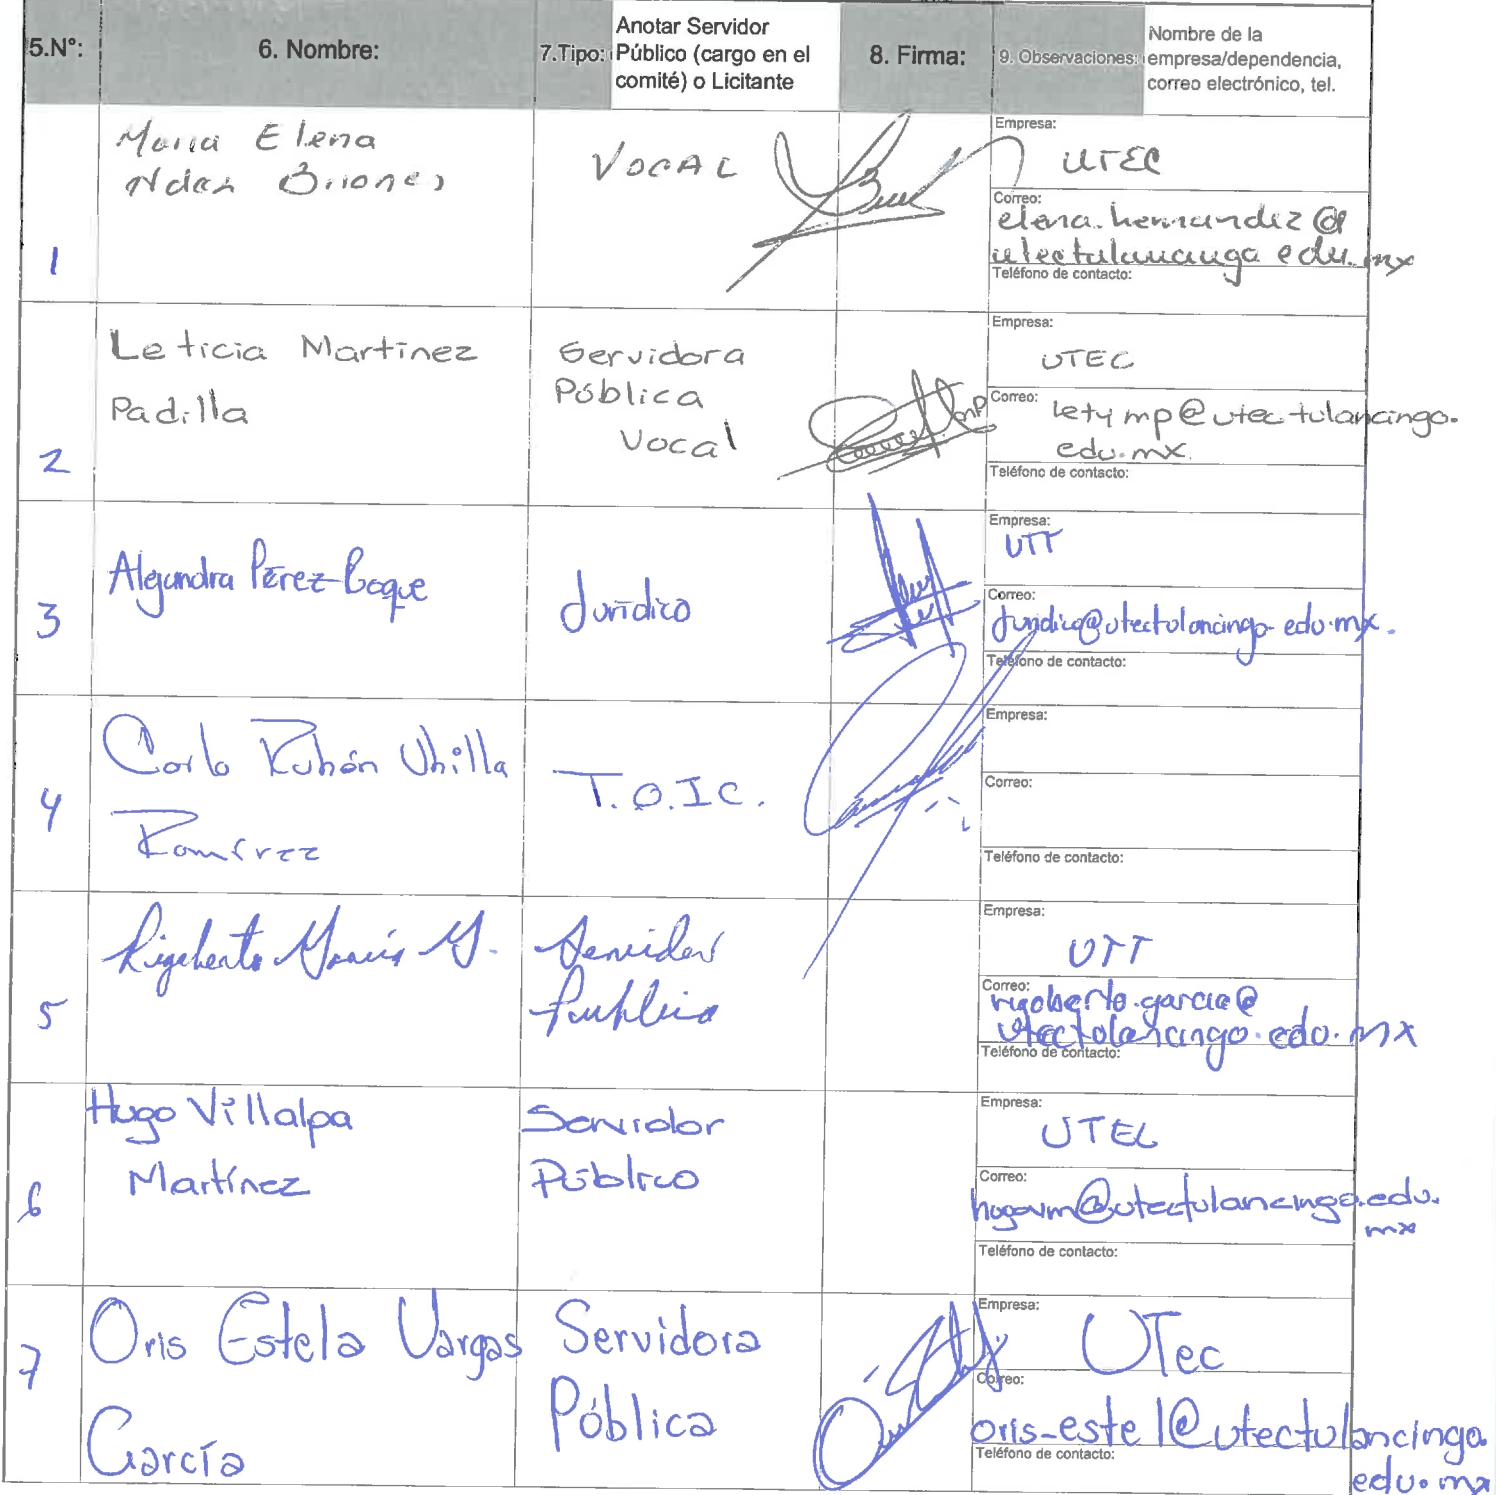 5.N°:
6. Nombre:
7.Tipo:
Anotar Servidor
Público (cargo en el
comité) o Licitante
8. Firma:
9. Observaciones:
Nombre de la
empresa/dependencia,
correo electrónico, tel.
1
Maria Elena
Hdez Briones
VOCAL
Empresa:
UTEC
Correo:
elena.hernandez@
utectulancingo.edu.mx
Teléfono de contacto:
2
Leticia Martínez
Padilla
Servidora
Pública
Vocal
Empresa:
UTEC
Correo:
letymp@utectulancingo.
edu.mx.
Teléfono de contacto:
3
Alejandra Pérez
Jurídico
Empresa:
UTT
Correo:
Juridico@utectulancingo.edu.mx.
Teléfono de contacto:
4
Carlo Rubén Ubilla
Ramírez
T.O.I.C.
Empresa:
Correo:
Teléfono de contacto:
5
Rigoberto García M.
Servidor
Publico
Empresa:
UTT
Correo:
rigoberto.garcia@
utectulancingo.edu.mx
Teléfono de contacto:
6
Hugo Villalpa
Martínez
Servidor
Público
Empresa:
UTEC
Correo:
hugovm@utectulancingo.edu.
mx
Teléfono de contacto:
7
Oris Estela Vargas
García
Servidora
Pública
Empresa:
UTec
Correo:
oris-estel@utectulancingo.
edu.mx
Teléfono de contacto: